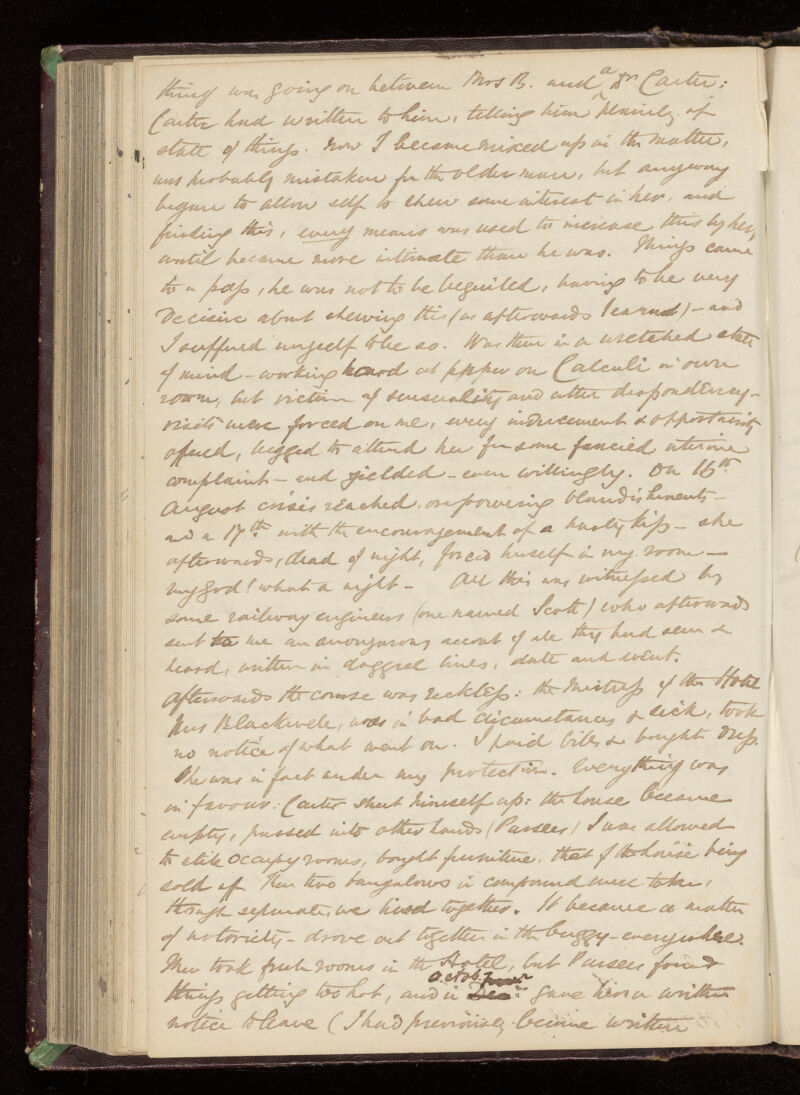 thing was going on between Mrs B. and a Dr Carter:
Carter had written to him, telling him plainly of
state of things. Now I became mixed up in the matter,
was probably mistaken for the older man, but anyway
began to allow self to shew some interest in her, and
finding this, every means was used to increase this by her,
until became more intimate than he was. Things came
to a pass, he was not to be beguiled, having to be very
decisive about shewing this (as afterwards learnt) – and
I suffered myself to be so. Was then in a wretched state
of mind – working hard at paper on Calculi in own
room, but victim of sensuality and utter despondency –
visits were forced on me, every inducement & opportunity
offered, begged to attend her for some fancied uterine
complaint – and yielded – even willingly. On 16th
August crisis reached, overpowering blandishments –
and a 17th with the encouragement of a hasty kiss – she
afterwards, dead of night, forced herself in my room –
my God! what a night – All this was witnessed by
some railway engineers (one named Scott) who afterwards
sent to me an anonymous account of all they had seen &
heard, written in doggrel lines, date and event.
Afterwards the course was reckless: the Mistress of the Hotel
Mrs Blackwell, was in bad circumstances & sick, took
no notice of what went on. I paid bills & bought dress.
She was in fact under my protection. Everything was
in favour: Carter shut himself up: the house became
empty, passed into other hands (Parsees) I was allowed
to still occupy rooms, bought furniture, that of the house being
sold off. Then two bungalows in compound were taken,
though separate, we lived together. It became a matter
of notoriety – drove out together in the buggy – everywhere.
Then took fresh rooms in the Hotel, but Parsees found
things getting too hot, and in Octobr gave her a written
notice to leave (I had previously become written